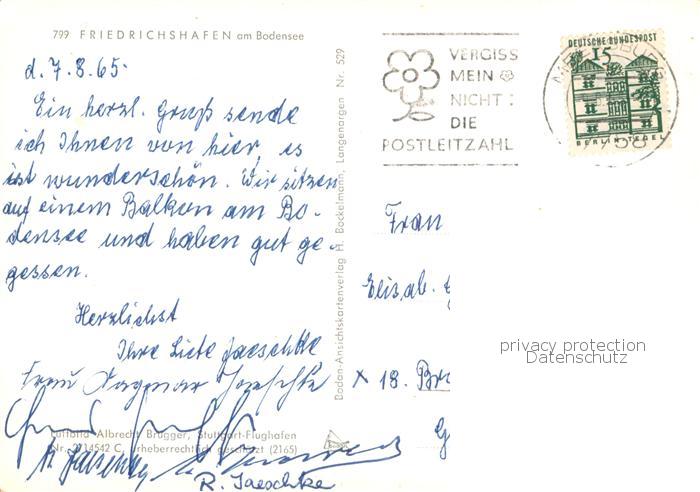 799 FRIEDRICHSHAFEN am Bodensee
d. 7.8.65.
Ein herzl. Gruß sende
ich Ihnen von hier, es
ist wunderschön. Wir sitzen
auf einem Balkon am Bo-
densee und haben gut ge-
gessen.
Herzlichst
Ihre Liete Jaeschke
Frau Dagmar Jaeschke
R. Jaeschke
Luftbild Albrecht Brugger, Stuttgart-Flughafen
Nr. 2/14542 C, urheberrechtlich geschützt (2165)
Bodan-Ansichtskartenverlag H. Bockelmann, Langenargen Nr. 529
VERGISS
MEIN
NICHT:
DIE
POSTLEITZAHL
DEUTSCHE BUNDESPOST
15
BERLIN-TEGEL
758
Frau
Elisab.
18. Br
privacy protection
Datenschutz